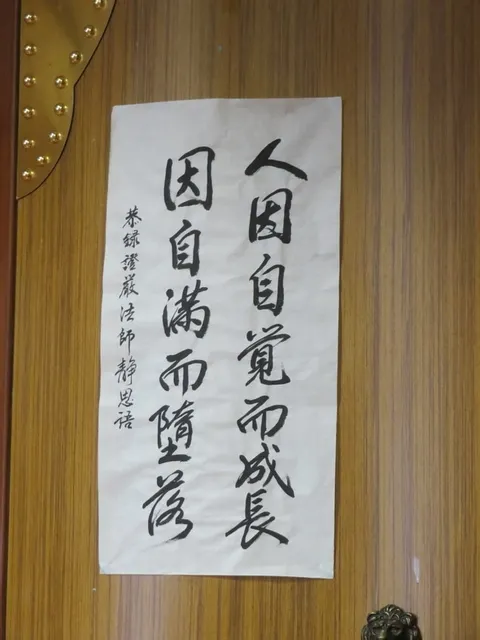 人因自覺而成長
因自滿而墮落
恭錄證嚴法師靜思語